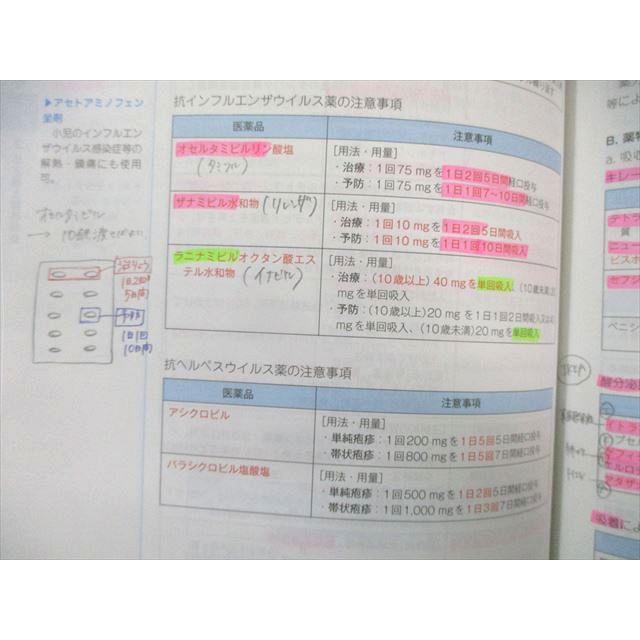 ▶アセトアミノフェン
坐剤
小児のインフルエン
ザウイルス感染症等の
解熱・鎮痛にも使用
可。
オセルタミビル
→ 10錠渡せばよい
治療
1日2回
5日間
予防
1日1回
10日間
抗インフルエンザウイルス薬の注意事項
医薬品
注意事項
オセルタミビルリン酸塩
(タミフル)
[用法・用量]
・治療：1回75 mgを1日2回5日間経口投与
・予防：1回75 mgを1日1回7〜10日間経口投与
ザナミビル水和物
(リレンザ)
[用法・用量]
・治療：1回10 mgを1日2回5日間吸入
・予防：1回10 mgを1日1回10日間吸入
ラニナミビルオクタン酸エス
テル水和物
(イナビル)
[用法・用量]
・治療：(10歳以上) 40 mgを単回吸入、(10歳未満)
mgを単回吸入
・予防：(10歳以上) 20 mgを1日1回2日間吸入又は
mgを単回吸入、(10歳未満) 20 mgを単回吸入
抗ヘルペスウイルス薬の注意事項
医薬品
注意事項
アシクロビル
[用法・用量]
・単純疱疹：1回200 mgを1日5回5日間経口投与
・帯状疱疹：1回800 mgを1日5回7日間経口投与
バラシクロビル塩酸塩
[用法・用量]
・単純疱疹：1回500 mgを1日2回5日間経口投与
・帯状疱疹：1回1,000 mgを1日3回7日間経口投与
等によ
B. 薬物
a. 吸収
キレー
テトラ
質
ニュー
ビスホ
セフジ
ペニシ
酸分泌
イトラ
アタザ
吸着によ